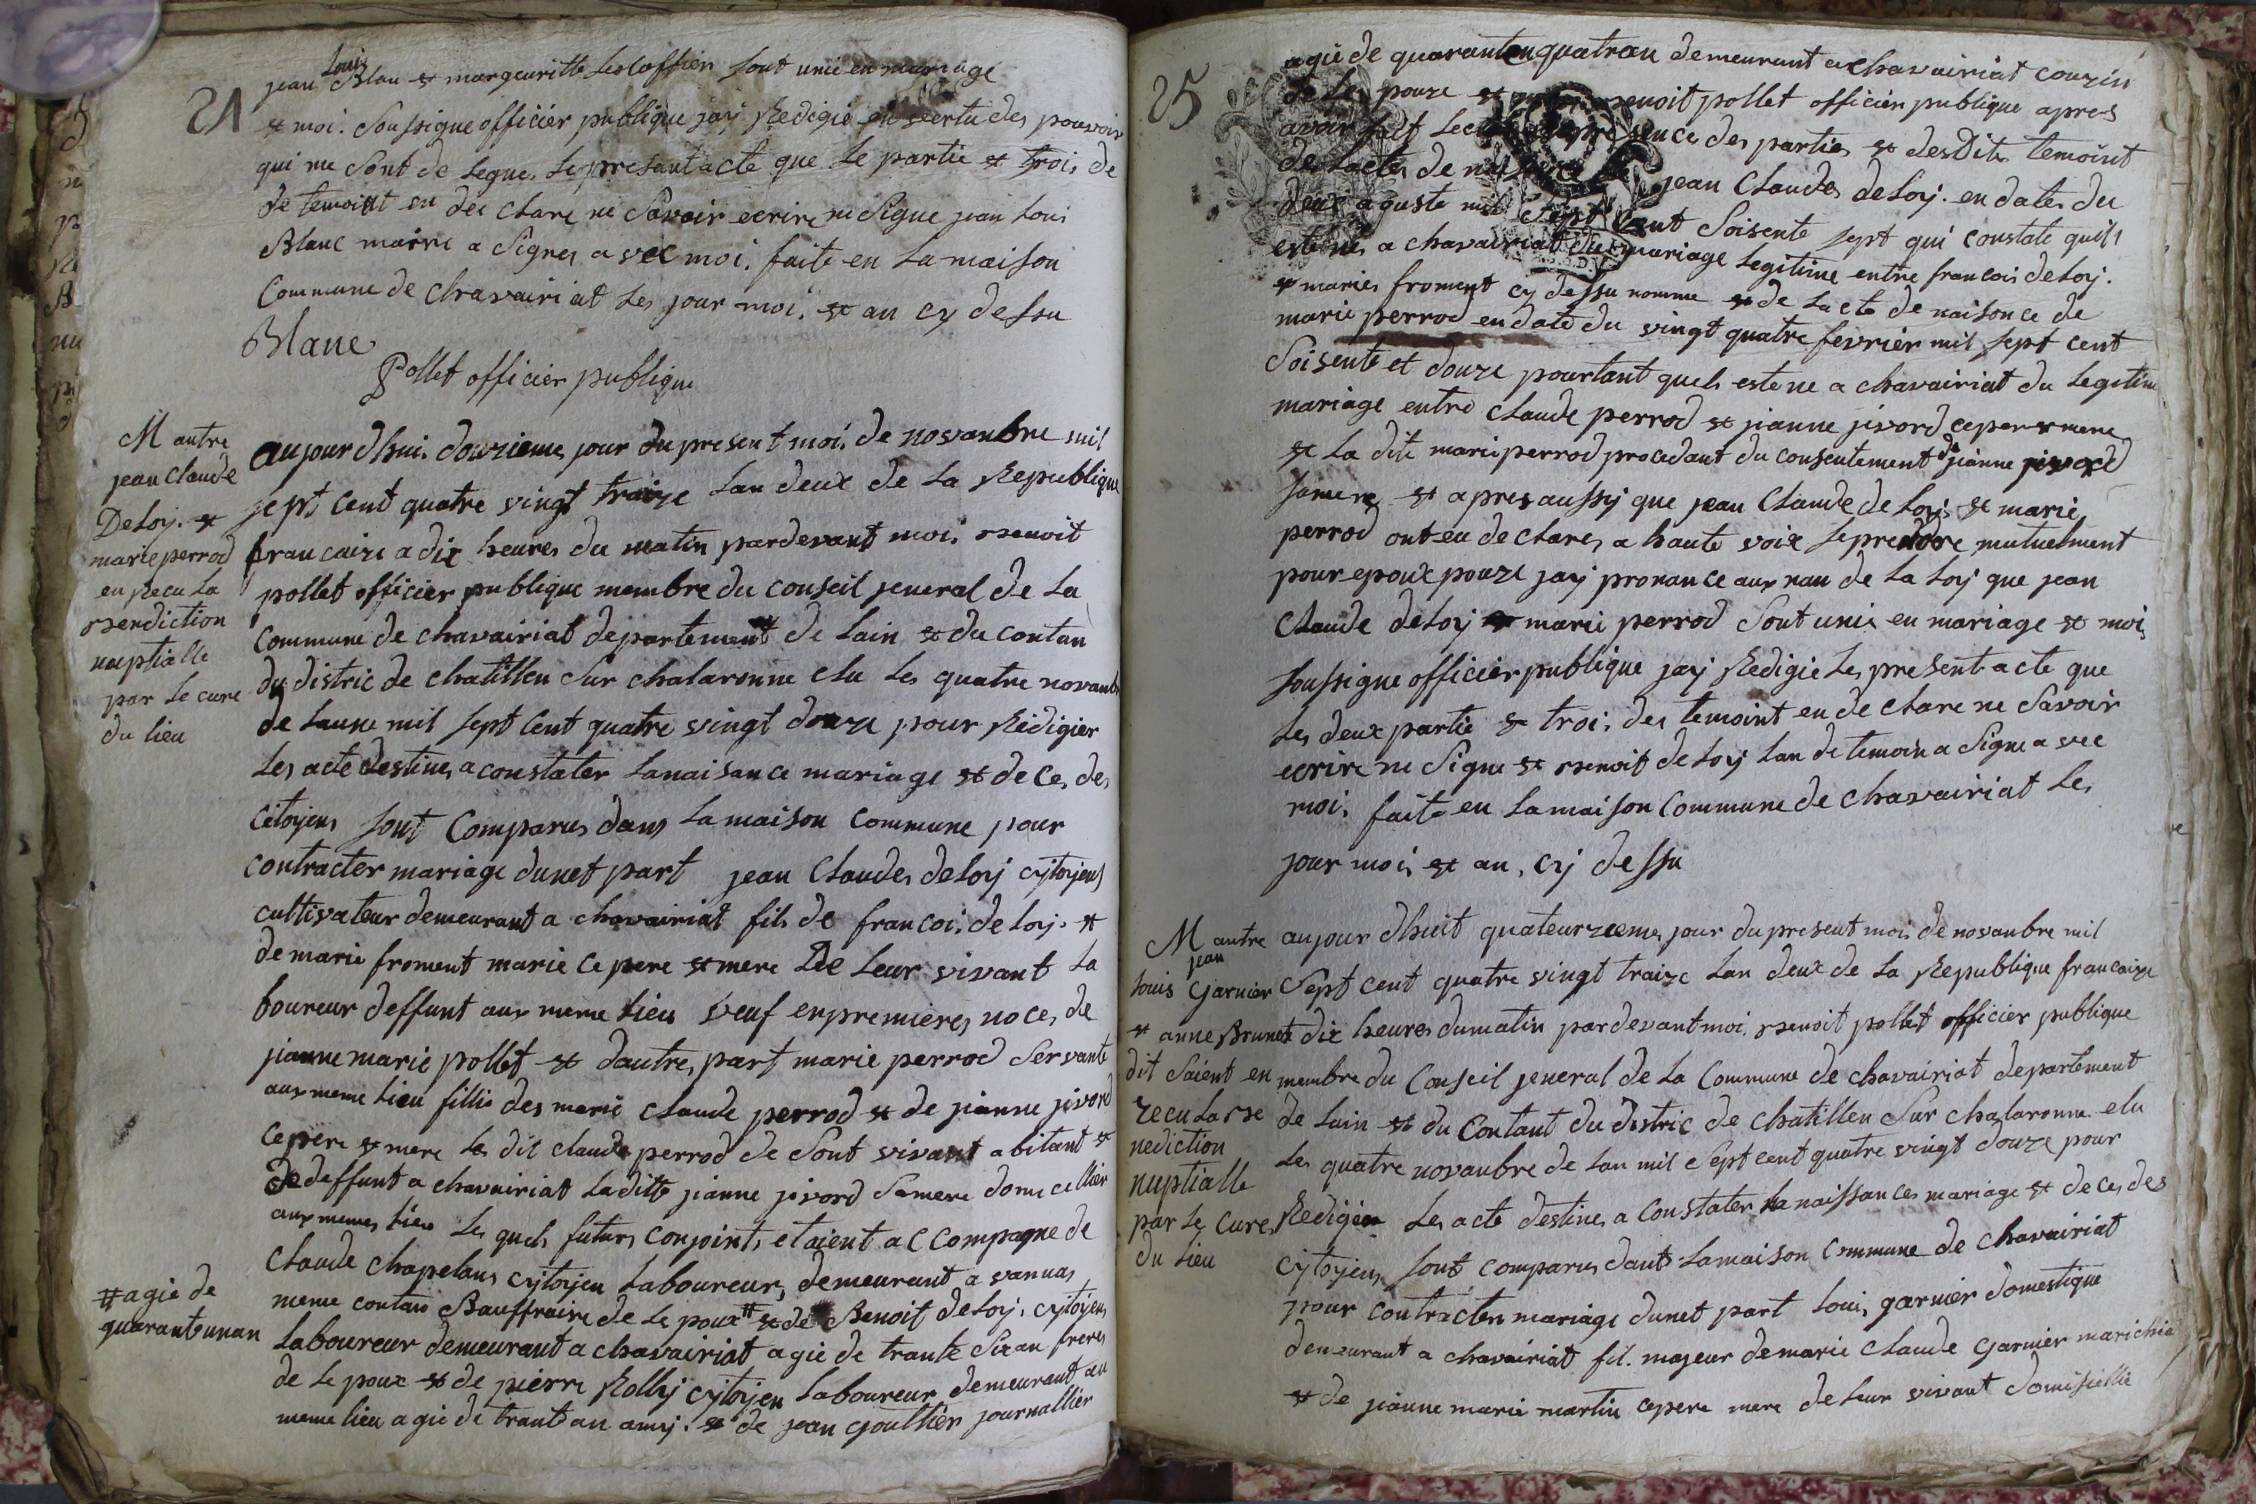 21
jean Louis Blan et margeuritte
sont unie en mariage
et moi. soussigne officier publique jay Redigie en vertu des pouvoir
qui me sont de legue, le presant acte que le partie et trois de
de temoint en de clare ne savoir ecrire ne signe jean loui
Blanc maire a signer avec moi. faite en La maison
Commune de chavairiat les jour moi. et an cy dessu
Blanc
Pollet officier publique
M autre
jean Claude
Deloy. et
marie perrod
en Recu La
Benediction
nuptialle
par le cure
du lieu
aujourdhui. douzieme jour du present moi. de novanbre mil
sept cent quatre vingt traize Lan deux de La Republique
francaize a dix heures du matin pardevant moi Benoit
pollet officier publique membre du conseil jeneral de La
Commune de chavairiat departement de Lain et du contan
du distric de chatillon sur chalaronne elu Les quatre novanb
de Lanne mil sept cent quatre vingt douze pour Redigier
Les acte destines a constater La naisance mariage et de ces des
citoyens sont Comparus dans La maison commune pour
contracter mariage dunet part jean Claudes deloy cytoyens
cultivateur demeurant a chavairiat fils de francoi. deloy. et
de marie froment marie ce pere et mere De Leur vivant La
boureur deffunt aux meme Lieu veuf en premieres noces de
jianne marie pollet et dautres part marie perrod servante
aux meme Lieu fillie des marie claude perrod et de jianne jivord
ce pere et mere Le dit claude perrod de sont vivant abitant et
De deffunt a chavairiat La ditte jianne jivord sa mere domicellier
aux memes Lieu Les quels futurs conjoints etaient accompagne de
Claude chapelans cytoyen Laboureur, demeurant a vannas
meme contan Bauffraire de Le poux # et de Benoit deloy. cytoyens
# agie de
quarantunan
Laboureur demeurant a chavairiat agie de trante sizan freres
de Le poux et de pierre Rolly cytoyen Laboureur demeurant au
meme lieu agie de trantan amy. et de jean goultier journallier
25
agie de quarantenquatran demeurant a chavairiat couzin
de Le pouze et Benoit pollet officier publique apres
avoir fait des parties et desdits temoint
de Lactes de jean Claudes deloy. en dates du
deux aguste mil sept cent soisente sept qui constate quils
este nes a chavairiat du mariage Legitime entre francois deloy.
et maries froment cy dessu nomme et de Lacte de naisonce de
marie perrod en date du vingt quatre fevrier mil sept cent
soisente et douze pourtant quels este ne a chavairiat du Legitim
mariage entre claude perrod et jianne jivord ce per et mere
et La dite marie perrod procedant du consentement de jianne jivord
sa mere et apres aussy que jean Claude deloy et marie
perrod ont en de clares a haute voix se prendre mutuelment
pour epoux pouze jay pronance aux nan de La Loy que jean
Claude deloy et marie perrod sont unie en mariage et moi
soussigne officier publique jay Redigie Les present acte que
Les deux partie et troi. des temoint en de clare ne savoir
ecrire ne signe et Benoit deloy Lan de temoin a signe avec
moi. faite en La maison Commune de chavairiat Les
jour moi. et an. cy dessu
M autre
jean
Louis Garnier
et anne Brunet
dit Saient en
recu La Be
nediction
nuptialle
par Le Cures
du Lieu
aujourdhuit quateurzieme jour du present moi. de novanbre mil
sept cent quatre vingt traize Lan deux de La Republique francaize
a dix heures du matin pardevant moi. Benoit pollet officier publique
membre du Conseil jeneral de La Commune de chavairiat departement
de Lain et du Contant du distric de chatillen sur chalaronne elu
Les quatre novanbre de Lan mil sept cent quatre vingt douze pour
Redigier Les acte destines a Constater La naissances mariage et de ces des
cytoyens sont comparus dants La maison commune de chavairiat
pour contracter mariage dunet part Loui. garnier domestique
demeurant a chavairiat fil. majeur de marie Claude Garnier marichia
et de jianne marie martin ce pere mere de Leur vivant domisiellie